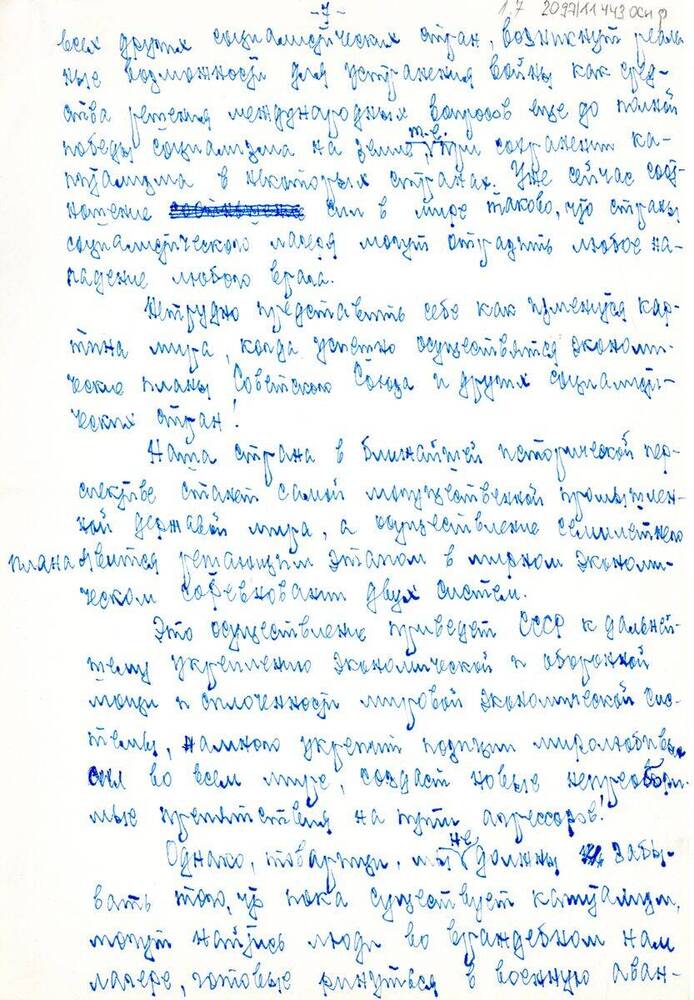 -7-
1,7 2097/11 443 Осн ф
всех других социалистических стран, возникнут реаль
ные возможности для устранения войны как сред-
ства решения международных вопросов еще до полной
победы социализма на земле, т.е. при сохранении ка-
питализма в некоторых странах. Уже сейчас соот-
ношение сил в мире таково, что страны
социалистического лагеря могут отразить любое на-
падение любого врага.
Нетрудно представить себе как изменится кар-
тина мира, когда успешно осуществятся экономи-
ческие планы Советского Союза и других социалисти-
ческих стран!
Наша страна в ближайшей исторической пер-
спективе станет самой могущественной промышлен-
ной державой мира, а осуществление семилетнего
плана явится решающим этапом в мирном экономи-
ческом соревновании двух систем.
Это осуществление приведет СССР к дальней-
шему укреплению экономической и оборонной
мощи и сплоченности мировой экономической сис-
темы, намного укрепит позиции миролюбивых
сил во всем мире, создаст новые непреобори-
мые препятствия на пути агрессоров!
Однако, товарищи, мы не должны забы-
вать того, что пока существует капитализм,
могут найтись люди во враждебном нам
лагере, готовые ринуться в военную аван-